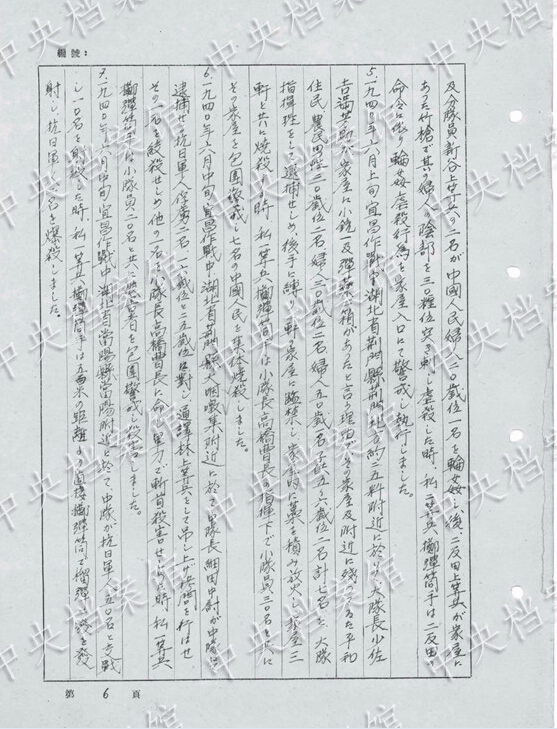 編號：
及分隊員新谷上等兵の二名が中國人民婦人二〇歳位一名を輪姦し、後、二反田上等兵が家屋に
あった竹槍で其の婦人の陰部を三〇糎位突き刺し虐殺した時、私一等兵擲彈筒手は二反田の
命令に依り輪姦虐殺行為を家屋入口にて警戒し執行しました。
5.一九四〇年六月上旬宜昌作戰中湖北省荊門縣荊門 地方約二五粁附近に於り、大隊長少佐
が家屋に小銃及彈藥一箱があったと言う理由でその家屋及附近に残ってゐた平和
住民 農民四〇歳位二名婦人三〇歳位二名婦人五〇歳名子供五、六歳位二名計七名を、大隊
指揮班をして逮捕せしめ、後手に縛り一軒の家屋に監禁し、家の に藁を積み放火し、家屋三
軒と共に焼殺した時、私一等兵、擲彈筒手は小隊長高橋曹長の指揮下で小隊員三〇名と共に
その家屋を包圍 戒し七名の中國人民を集体焼殺しました。
6.一九四〇年六月中旬宜昌作戰中湖北省荊門縣大烟墩集附近に於て中隊長細田中尉が中隊に
逮捕せる抗日軍人俘虜二名一八歳位と二五歳位に對し通譯林上等兵をして吊し上げ拷問を行はせ
その一名を絞殺せしめ他の一名を小隊長高橋曹長に命じ軍刀で斬首殺害せしめし時、私一等兵
擲彈筒手は小隊員二〇名と共に 者を包圍警戒し殺害しました。
7.一九四〇年六月中旬宜昌作戰中湖北省當陽縣當陽附近に於て中隊が抗日軍人五〇名と交戰
し一〇名を射殺した時、私一等兵擲彈筒手は五百米の距離より直接擲彈筒で榴彈 發を發
射し抗日軍人 名を爆殺しました。
第 6 頁
中央档案馆